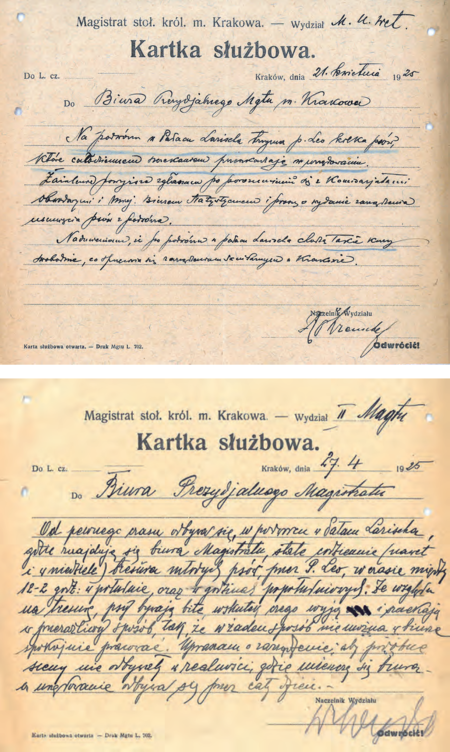 Magistrat stoł. król. m. Krakowa. — Wydział M. U. Wet.
Kartka służbowa.
Do L. cz. Kraków, dnia 21. kwietnia 1925
Do Biura Prezydjalnego Mgtu m. Krakowa
Na podwórzu w Pałacu Larischa trzyma p. Leo kilka psów,
które całodziennem szczekaniem przeszkadzają w urzędowaniu.
powyższe zgłaszam po porozumieniu się z Komisarjatami
obwodowymi i Miej. Biurem Statystycznem i proszę o wydanie zarządzenia
usunięcia psów z podwórza.
Nadmieniam, że po podwórzu w pałacu Larischa chodzą także kury
swobodnie, co sprzeciwia się zarządzeniom sanitarnym w Krakowie.
Naczelnik Wydziału
Karta służbowa otwarta. — Druk Mgtu L. 702. Odwrócić!
Magistrat stoł. król. m. Krakowa. — Wydział II Magtu
Kartka służbowa.
Do L. cz. Kraków, dnia 27. 4 1925
Do Biura Prezydjalnego Magistratu
Od pewnego czasu odbywa się, w podworcu w Pałacu Larischa,
gdzie znajdują się biura Magistratu, stale codziennie (nawet
i w niedziele) tresura młodych psów przez P. Leo, w czasie między
12-2 godz. w południe, oraz w godzinach popołudniowych. Ze względu
na tresurę, psy bywają bite wskutek czego wyją i szczekają
w przeraźliwy sposób tak, że w żaden sposób nie można w biurze
spokojnie pracować. Upraszam o zarządzenie, aby podobne
sceny nie odbywały się w realności, gdzie mieszczą się biura
a urzędowanie odbywa się przez cały dzień. —
Naczelnik Wydziału
Karta służbowa otwarta — Druk Mgtu L. 702. Odwrócić!